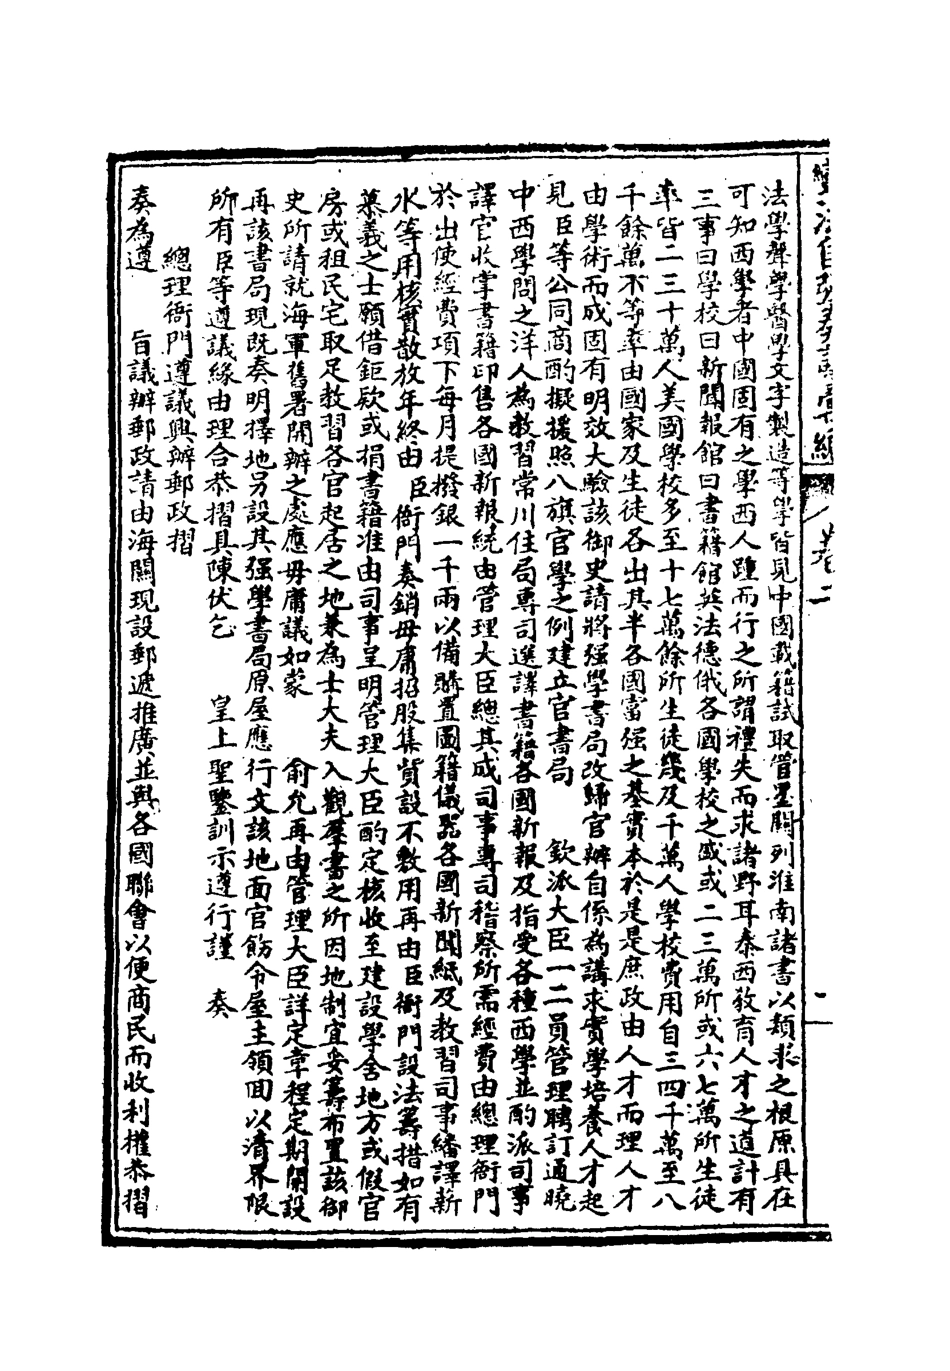 變法自强奏議彙編 卷二 二
法學聲學醫學文字製造等學皆見中國載籍試取管墨關列淮南諸書以類求之根原具在
可知西學者中國固有之學西人踵而行之所謂禮失而求諸野耳泰西敎育人才之道計有
三事曰學校曰新聞報館曰書籍館英法德俄各國學校之盛或二三萬所或六七萬所生徒
率皆二三十萬人美國學校多至十七萬餘所生徒幾及千萬人學校費用自三四千萬至八
千餘萬不等率由國家及生徒各出其半各國富强之基實本於是是庶政由人才而理人才
由學術而成固有明效大驗該御史請將强學書局改歸官辦自係爲講求實學培養人才起
見臣等公同商酌擬援照八旗官學之例建立官書局 欽派大臣一二員管理聘訂通曉
中西學問之洋人爲敎習常川住局專司選譯書籍各國新報及指受各種西學並酌派司事
譯官收掌書籍印售各國新報統由管理大臣總其成司事專司稽察所需經費由總理衙門
於出使經費項下每月提撥銀一千兩以備購置圖籍儀器各國新聞紙及教習司事繙譯薪
水等用核實散放年終由 臣衙門奏銷毋庸招股集貲設不敷用再由臣衙門設法籌措如有
慕義之士願借鉅款或捐書籍准由司事呈明管理大臣酌定核收至建設學舍地方或假官
房或租民宅取足教習各官起居之地兼爲士大夫入觀羣書之所因地制宜妥籌布置該御
史所請就海軍舊署開辦之處應毋庸議如蒙 俞允再由管理大臣詳定章程定期開設
再該書局現既奏明擇地另設其强學書局原屋應行文該地面官飭令屋主領回以清界限
所有臣等遵議緣由理合恭摺具陳伏乞 皇上聖鑒訓示遵行謹 奏
總理衙門遵議興辦郵政摺
奏為遵 旨議辦郵政請由海關現設郵遞推廣並與各國聯會以便商民而收利權恭摺